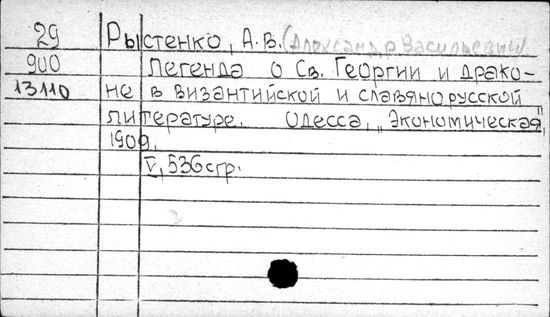 29 Рыстенко, А.В. (Александр Васильевич)
900 Легенда о Св. Георгии и драко-
13110 не в византийской и славянорусской
литературе. Одесса, „Экономическая",
1909.
V, 536 стр.